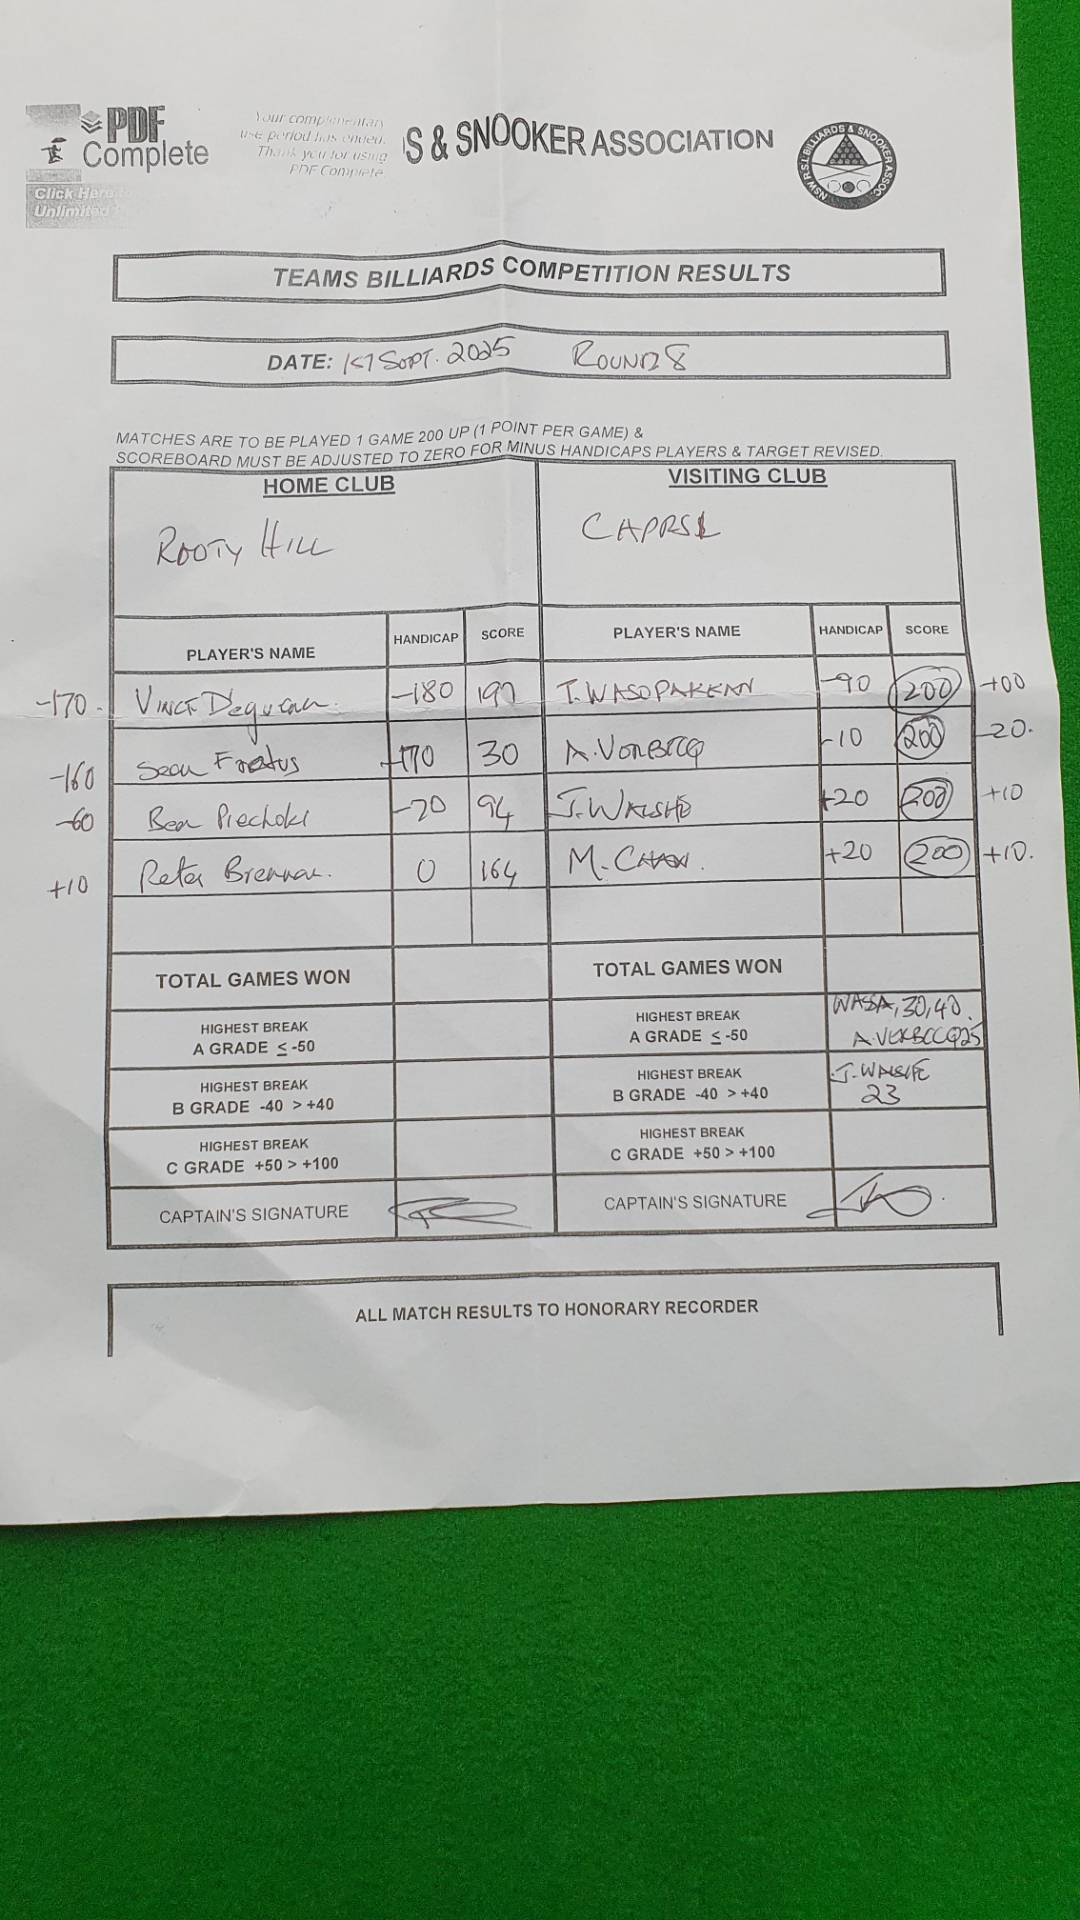 PDF
Complete
Your complimentary
use period has ended.
Thank you for using
PDF Complete.
Click Here
Unlimited
S & SNOOKER ASSOCIATION
NSW R.S.L BILLIARDS & SNOOKER ASSOC.
TEAMS BILLIARDS COMPETITION RESULTS
DATE: 1ST SEPT. 2025 ROUND 8
MATCHES ARE TO BE PLAYED 1 GAME 200 UP (1 POINT PER GAME) &
SCOREBOARD MUST BE ADJUSTED TO ZERO FOR MINUS HANDICAPS PLAYERS & TARGET REVISED.
HOME CLUB VISITING CLUB
ROOTY HILL CAPRSL
PLAYER'S NAME HANDICAP SCORE PLAYER'S NAME HANDICAP SCORE
-170. VINCE -180 T. WASOPAKEAN -90 200
-160 Sean 170 30 -10 200 -20.
-60 Ben Piechoki -70 94 J. WALSHE +20 200 +10
+10 Peter Brennan. 0 164 M. CHAN. +20 200 +10.
TOTAL GAMES WON TOTAL GAMES WON
HIGHEST BREAK
A GRADE ≤ -50
HIGHEST BREAK
A GRADE ≤ -50
WASA, 30, 40.
25
HIGHEST BREAK
B GRADE -40 > +40
HIGHEST BREAK
B GRADE -40 > +40
J. WALSHE
23
HIGHEST BREAK
C GRADE +50 > +100
HIGHEST BREAK
C GRADE +50 > +100
CAPTAIN'S SIGNATURE CAPTAIN'S SIGNATURE
ALL MATCH RESULTS TO HONORARY RECORDER